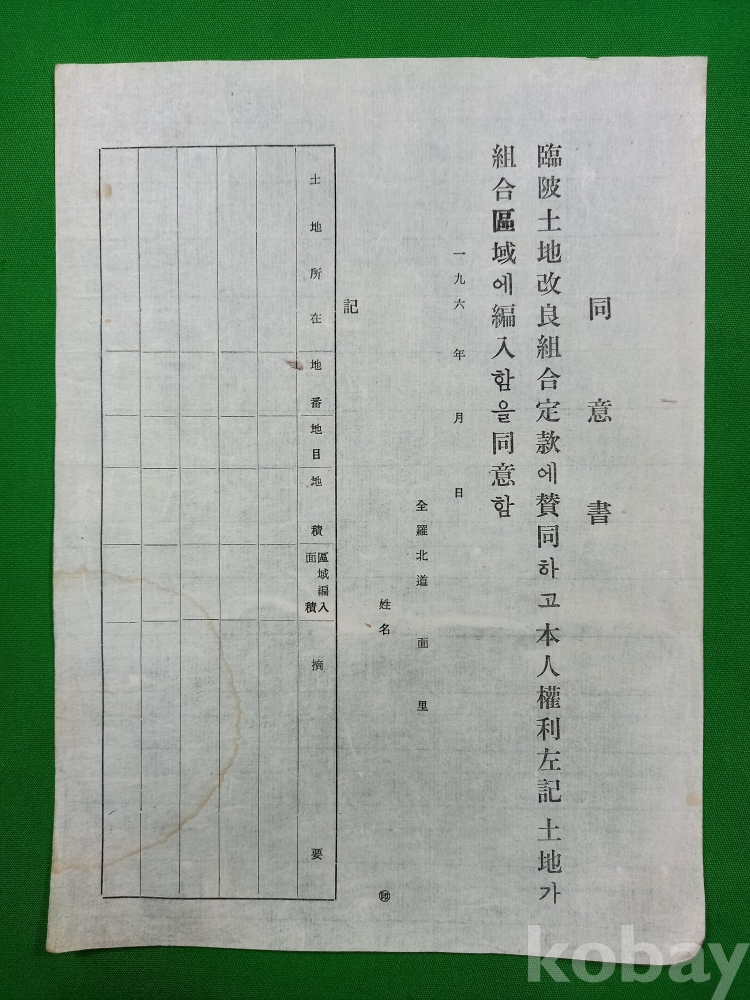 同意書
臨陂土地改良組合定款에賛同하고本人權利左記土地가
組合區域에編入함을同意함
一九六 年 月 日
全羅北道 面 里
姓名 ㊞
記
土地所在
地番
地目
地積
區域編入
面積
摘要
kobay